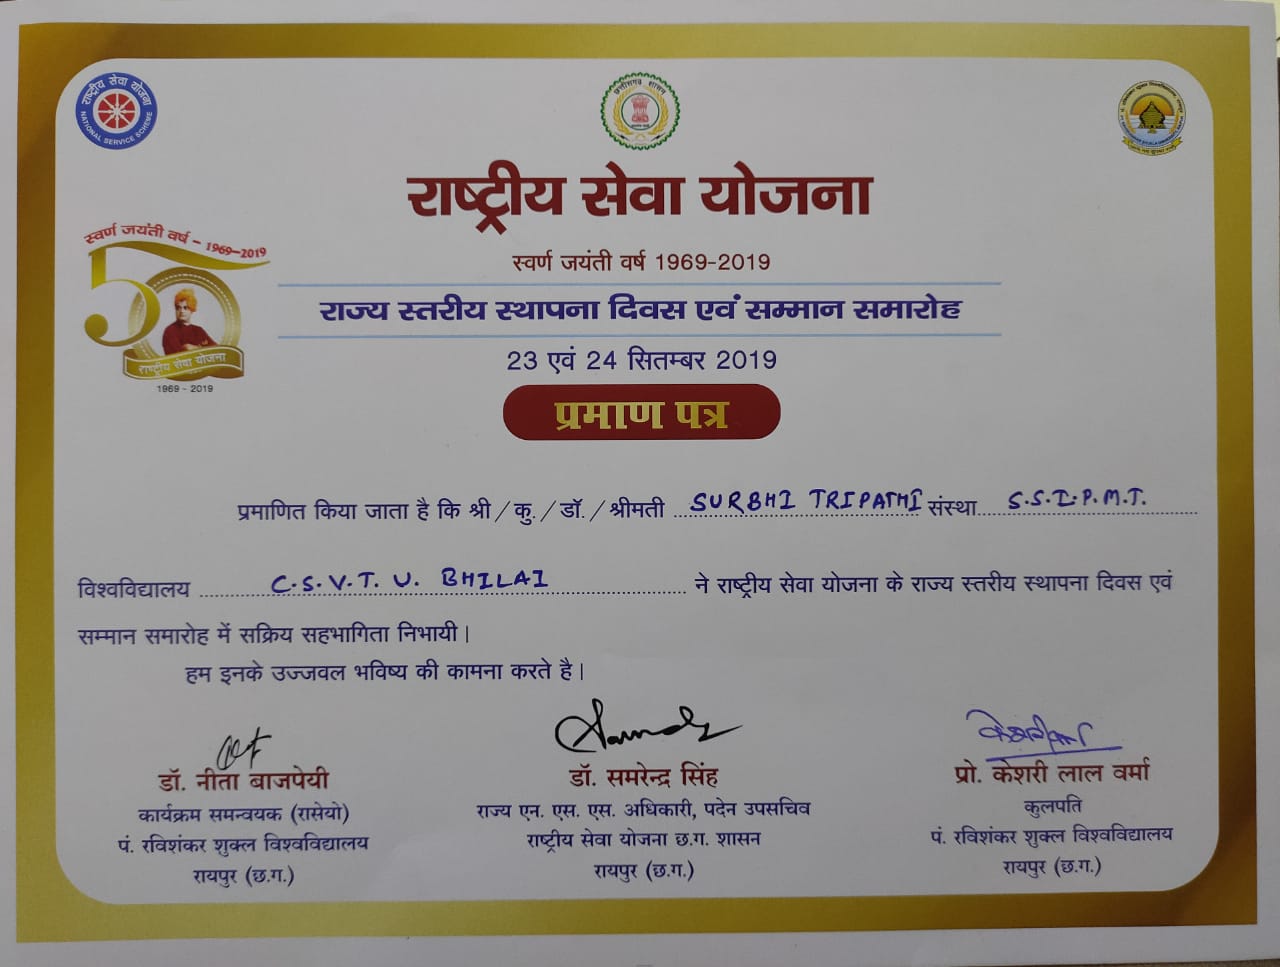 राष्ट्रीय सेवा योजना
NATIONAL SERVICE SCHEME
छत्तीसगढ़ शासन
राष्ट्रीय सेवा योजना
स्वर्ण जयंती वर्ष - 1969-2019
50
राष्ट्रीय सेवा योजना
1969 - 2019
स्वर्ण जयंती वर्ष 1969-2019
राज्य स्तरीय स्थापना दिवस एवं सम्मान समारोह
23 एवं 24 सितम्बर 2019
प्रमाण पत्र
प्रमाणित किया जाता है कि श्री / कु. / डॉ. / श्रीमती SURBHI TRIPATHI संस्था S.S.I.P.M.T.
विश्वविद्यालय C.S.V.T.U. BHILAI ने राष्ट्रीय सेवा योजना के राज्य स्तरीय स्थापना दिवस एवं
सम्मान समारोह में सक्रिय सहभागिता निभायी।
हम इनके उज्जवल भविष्य की कामना करते है।
डॉ. नीता बाजपेयी
कार्यक्रम समन्वयक (रासेयो)
पं. रविशंकर शुक्ल विश्वविद्यालय
रायपुर (छ.ग.)
डॉ. समरेन्द्र सिंह
राज्य एन. एस. एस. अधिकारी, पदेन उपसचिव
राष्ट्रीय सेवा योजना छ.ग. शासन
रायपुर (छ.ग.)
केशरीलाल वर्मा
प्रो. केशरी लाल वर्मा
कुलपति
पं. रविशंकर शुक्ल विश्वविद्यालय
रायपुर (छ.ग.)